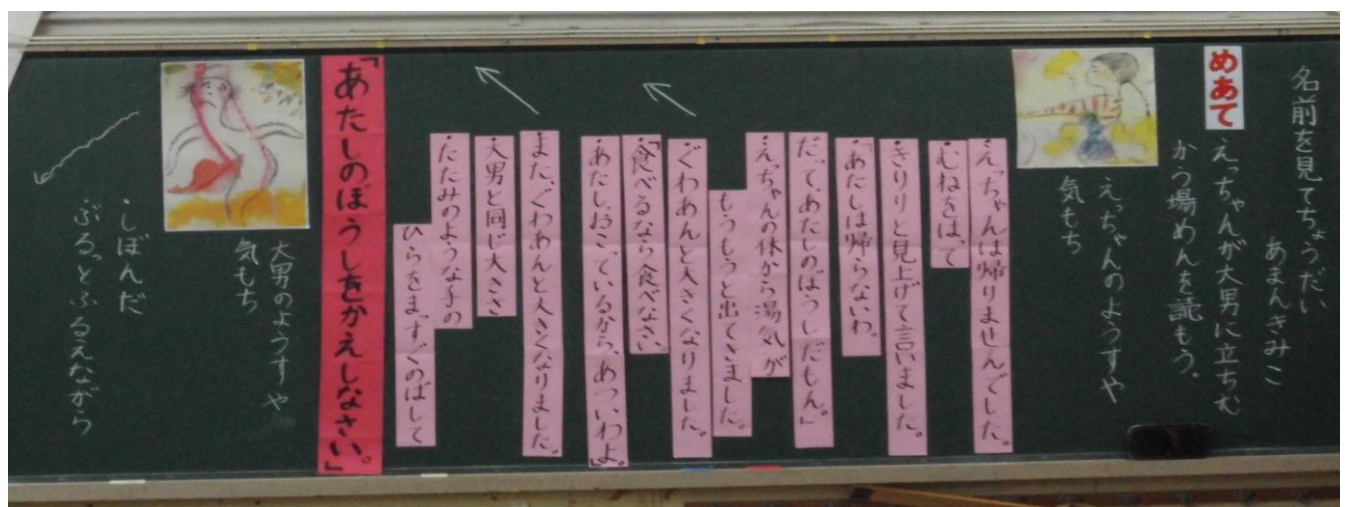 名前を見てちょうだい
あまんきみこ
めあて
えっちゃんが大男に立ちむ
かう場めんを読もう。
えっちゃんのようすや
気もち
・えっちゃんは帰りませんでした。
むねをはって
きりりと見上げて言いました。
「あたしは帰らないわ。
だって、あたしのぼうしだもん。」
・えっちゃんの体から湯気が
もうもうと出てきました。
ぐわあんと大きくなりました。
・「食べるなら食べなさい。
あたし、おこっているから、あついわよ。」
また、ぐわあんと大きくなりました。
・大男と同じ大きさ
・たたみのような手の
ひらをまっすぐのばして
「あたしのぼうしをかえしなさい。」
大男のようすや
気もち
・しぼんだ
ぶるっとふるえながら